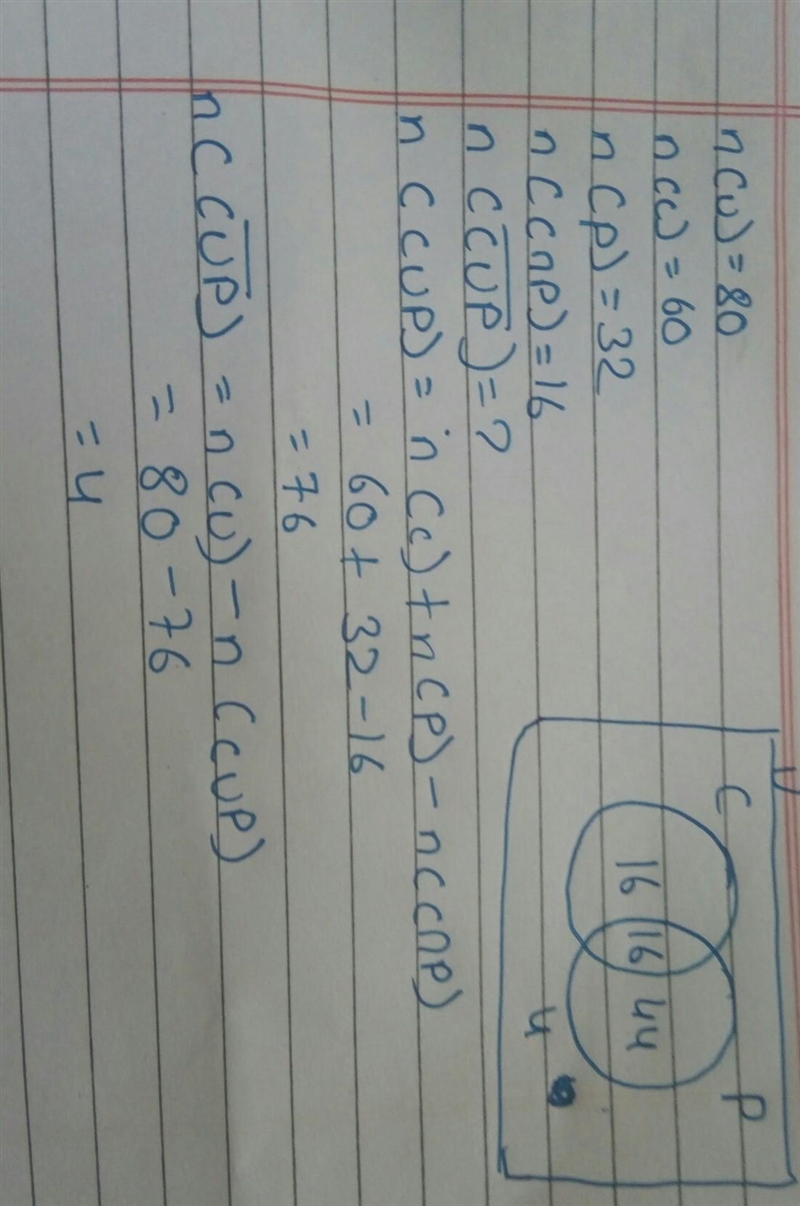 n(U) = 80
n(C) = 60
n(P) = 32
n(C∩P) = 16
n(C̅U̅P̅) = ?
n(CUP) = n(C) + n(P) - n(C∩P)
= 60 + 32 - 16
= 76
n(C̅U̅P̅) = n(U) - n(CUP)
= 80 - 76
= 4
U
C P
16 16 44
4